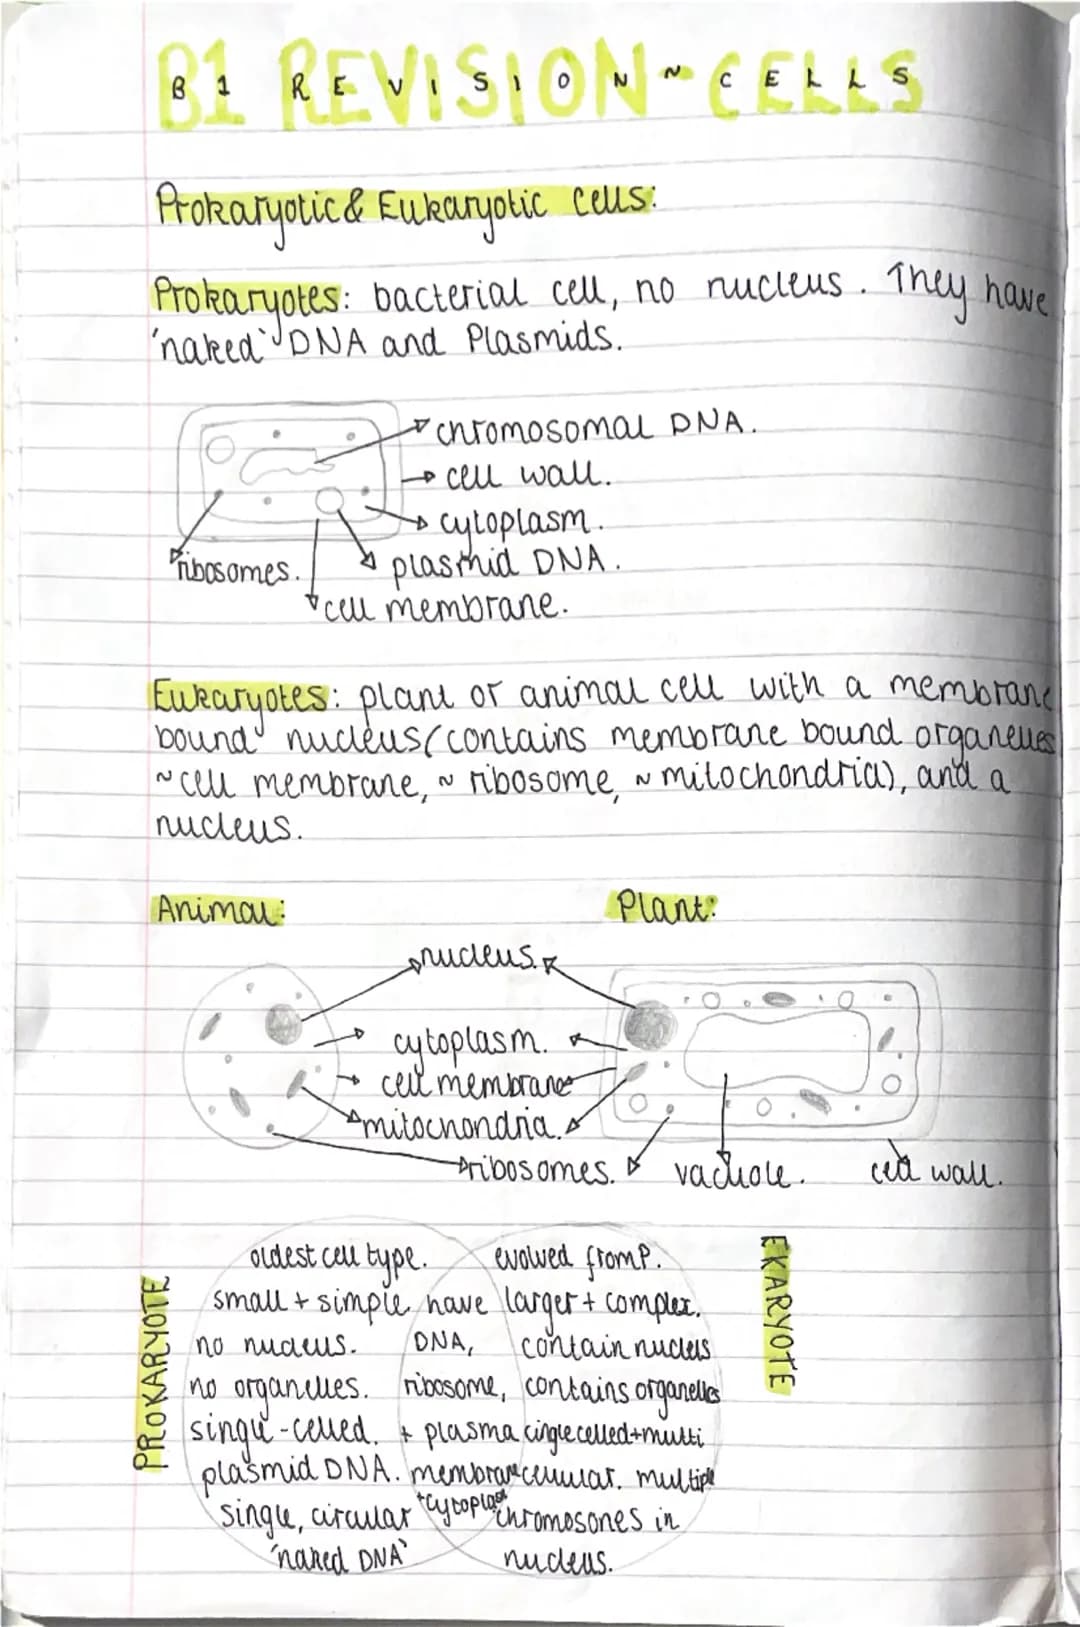 B1 REVISION ~ CELLS
Prokaryotic & Eukaryotic cells:
Prokaryotes: bacterial cell, no nucleus. They have
'naked' DNA and Plasmids.
chromosomal DNA.
cell wall.
cytoplasm.
ribosomes. plasmid DNA.
cell membrane.
Eukaryotes: plant or animal cell with a membrane
bound nucleus (contains membrane bound organelles
~ cell membrane, ~ ribosome, ~ mitochondria), and a
nucleus.
Animal: Plant:
nucleus.
cytoplasm.
cell membrane
mitochondria.
ribosomes. vacuole. cell wall.
PROKARYOTE
oldest cell type.
small + simple
no nucleus.
no organelles.
single-celled.
plasmid DNA.
single, circular
'naked DNA'
have
DNA,
ribosome,
+ plasma
membrane
+cytoplasm
evolved from P.
larger + complex.
contain nucleus
contains organelles
cinglecelled+multi
cellular. multiple
chromosones in
nucleus.
EKARYOTE